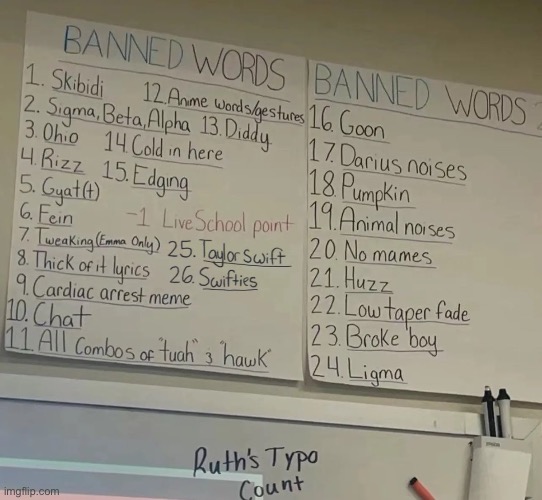 BANNED WORDS
1. Skibidi
2. Sigma, Beta, Alpha
3. Ohio
4. Rizz
5. Gyat(t)
6. Fein
7. Tweaking (Emma Only)
8. Thick of it lyrics
9. Cardiac arrest meme
10. Chat
11. All Combos of "tuah" & "hawk"
12. Anime words/gestures
13. Diddy
14 Cold in here
15. Edging
-1 LiveSchool point
25. Taylor Swift
26. Swifties
BANNED WORDS 2
16. Goon
17. Darius noises
18. Pumpkin
19. Animal noises
20. No mames
21. Huzz
22. Low taper fade
23. Broke boy
24. Ligma
Ruth's Typo
Count
imgflip.com